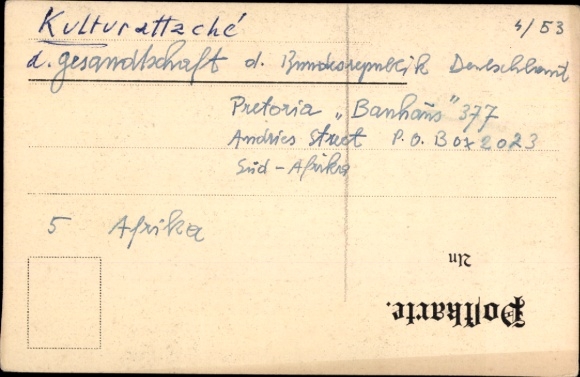 Kulturattzché
4/53
d. Gesandtschaft d. Bundesrepublik Deutschland
Pretoria „Banhaus" 377
Andries Street P.O. Box 2023
Süd-Afrika
5 Afrika
An
Postkarte.